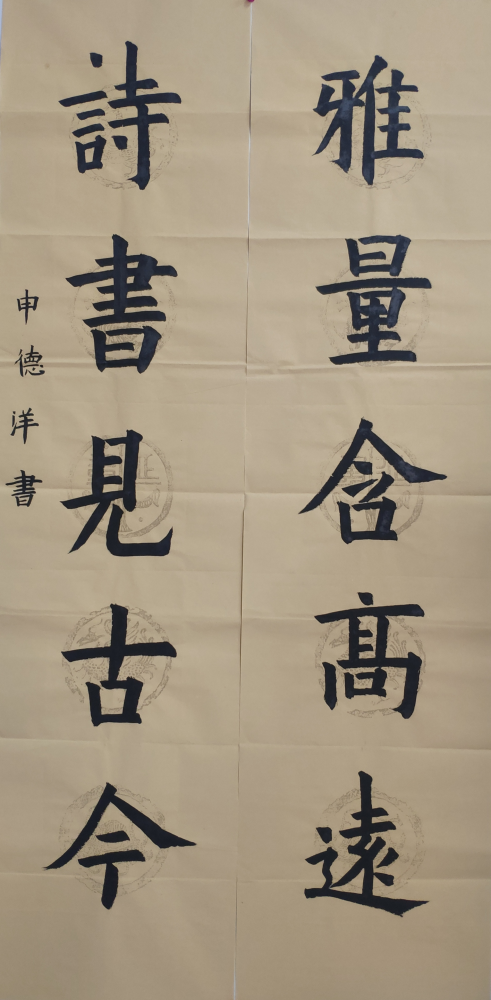 雅量含髙遠
詩書見古今
申德洋書